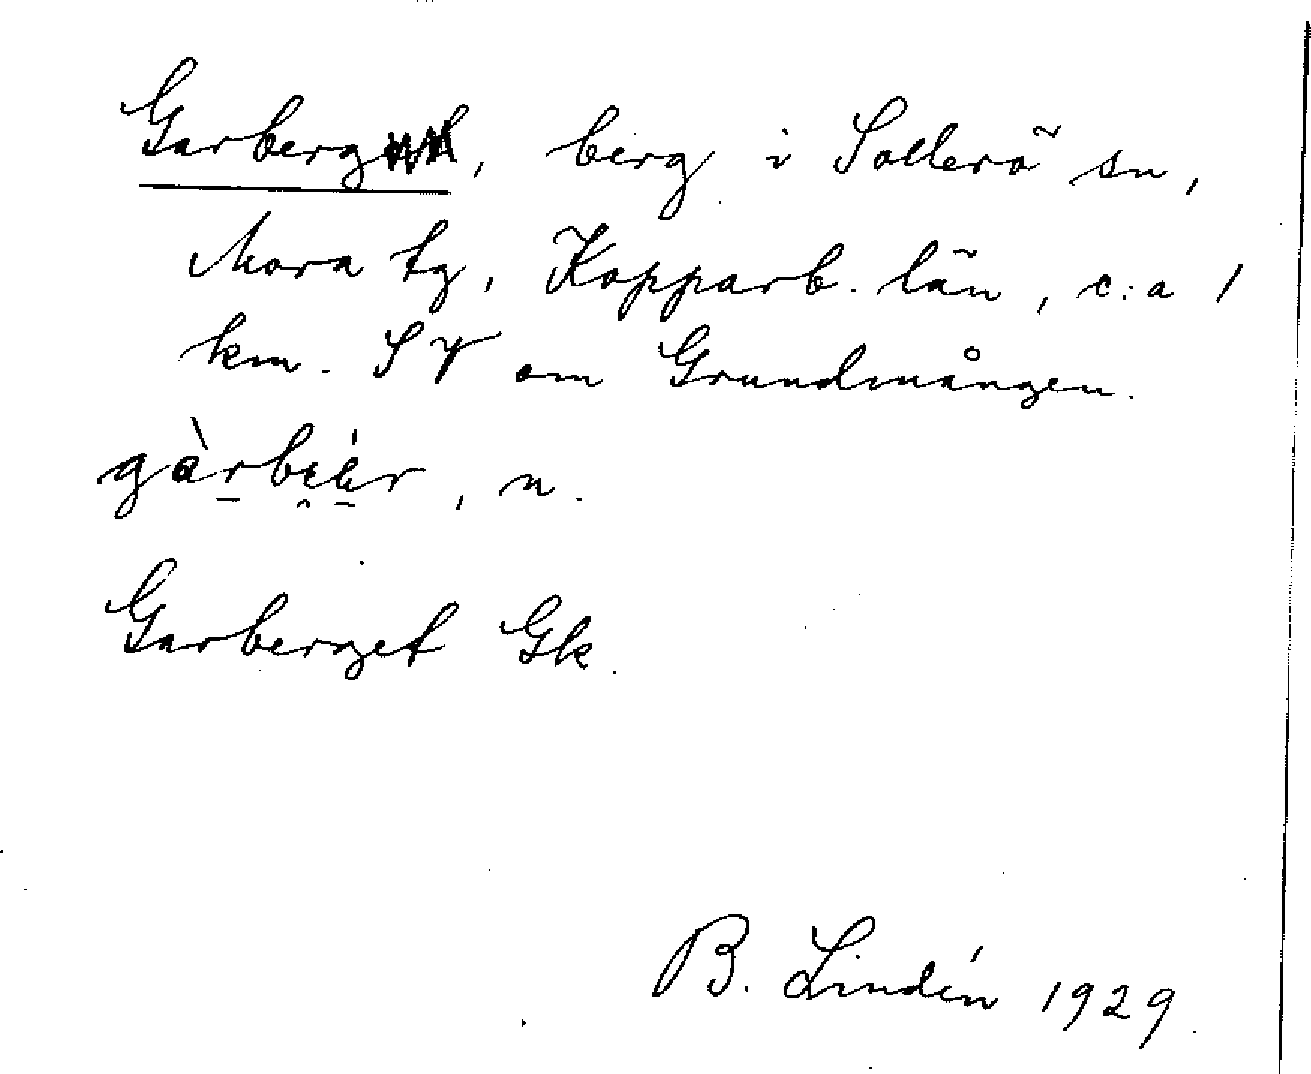 Garberg, berg i Sollerö sn,
Mora tg, Kopparb. län, c:a 1
km. SV om Grundmången.
gàrbi̯èr, n.
Garberget Gk.
B. Lindén 1929.